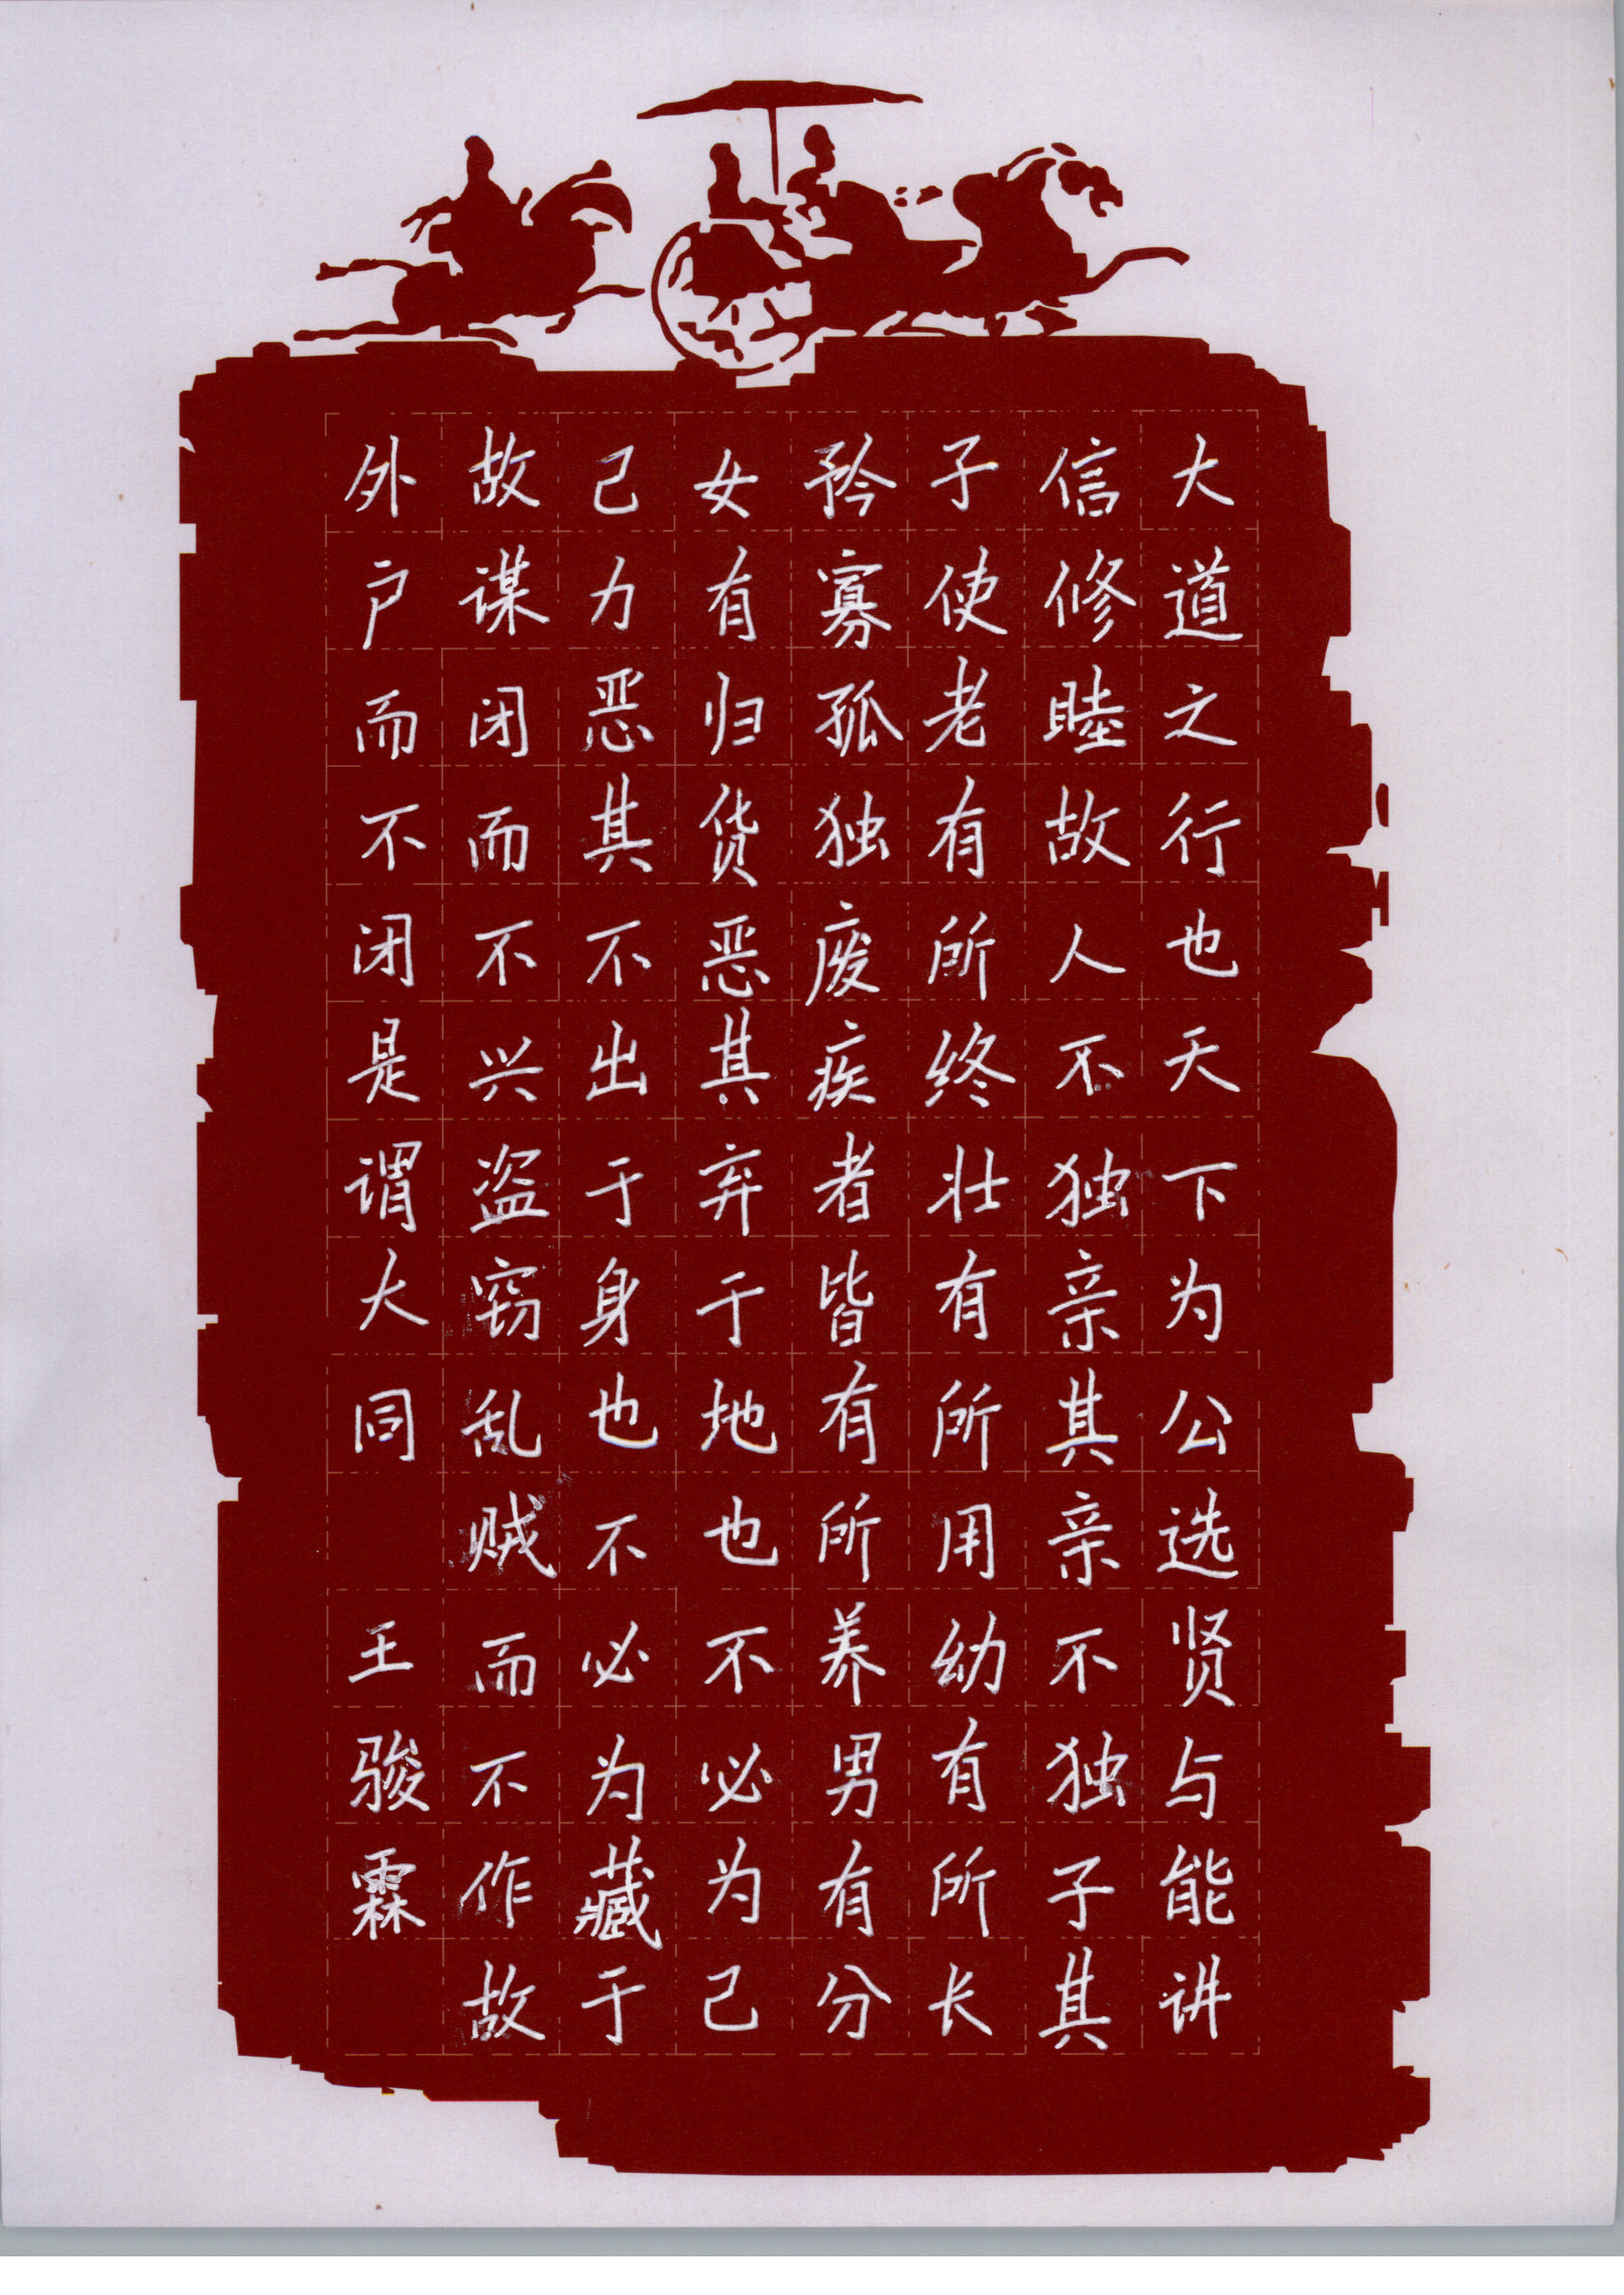 大道之行也天下为公选贤与能讲
信修睦故人不独亲其亲不独子其
子使老有所终壮有所用幼有所长
矜寡孤独废疾者皆有所养男有分
女有归货恶其弃于地也不必为己
己力恶其不出于身也不必为藏于
故谋闭而不兴盗窃乱贼而不作故
外户而不闭是谓大同 王骏霖